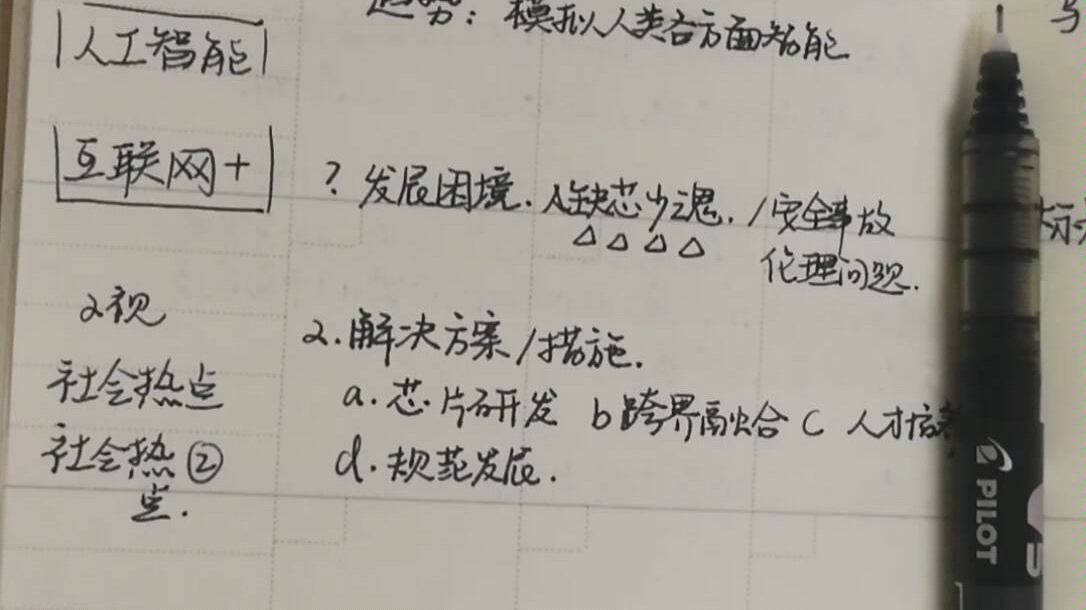 趋势：模拟人类各方面智能
人工智能
互联网+
? 发展困境. 缺芯少魂. /安全事故
伦理问题.
2视
2.解决方案/措施.
社会热点
a.芯片研发 b跨界融合 c 人才培养
社会热②
d.规范发展.
点.
PILOT